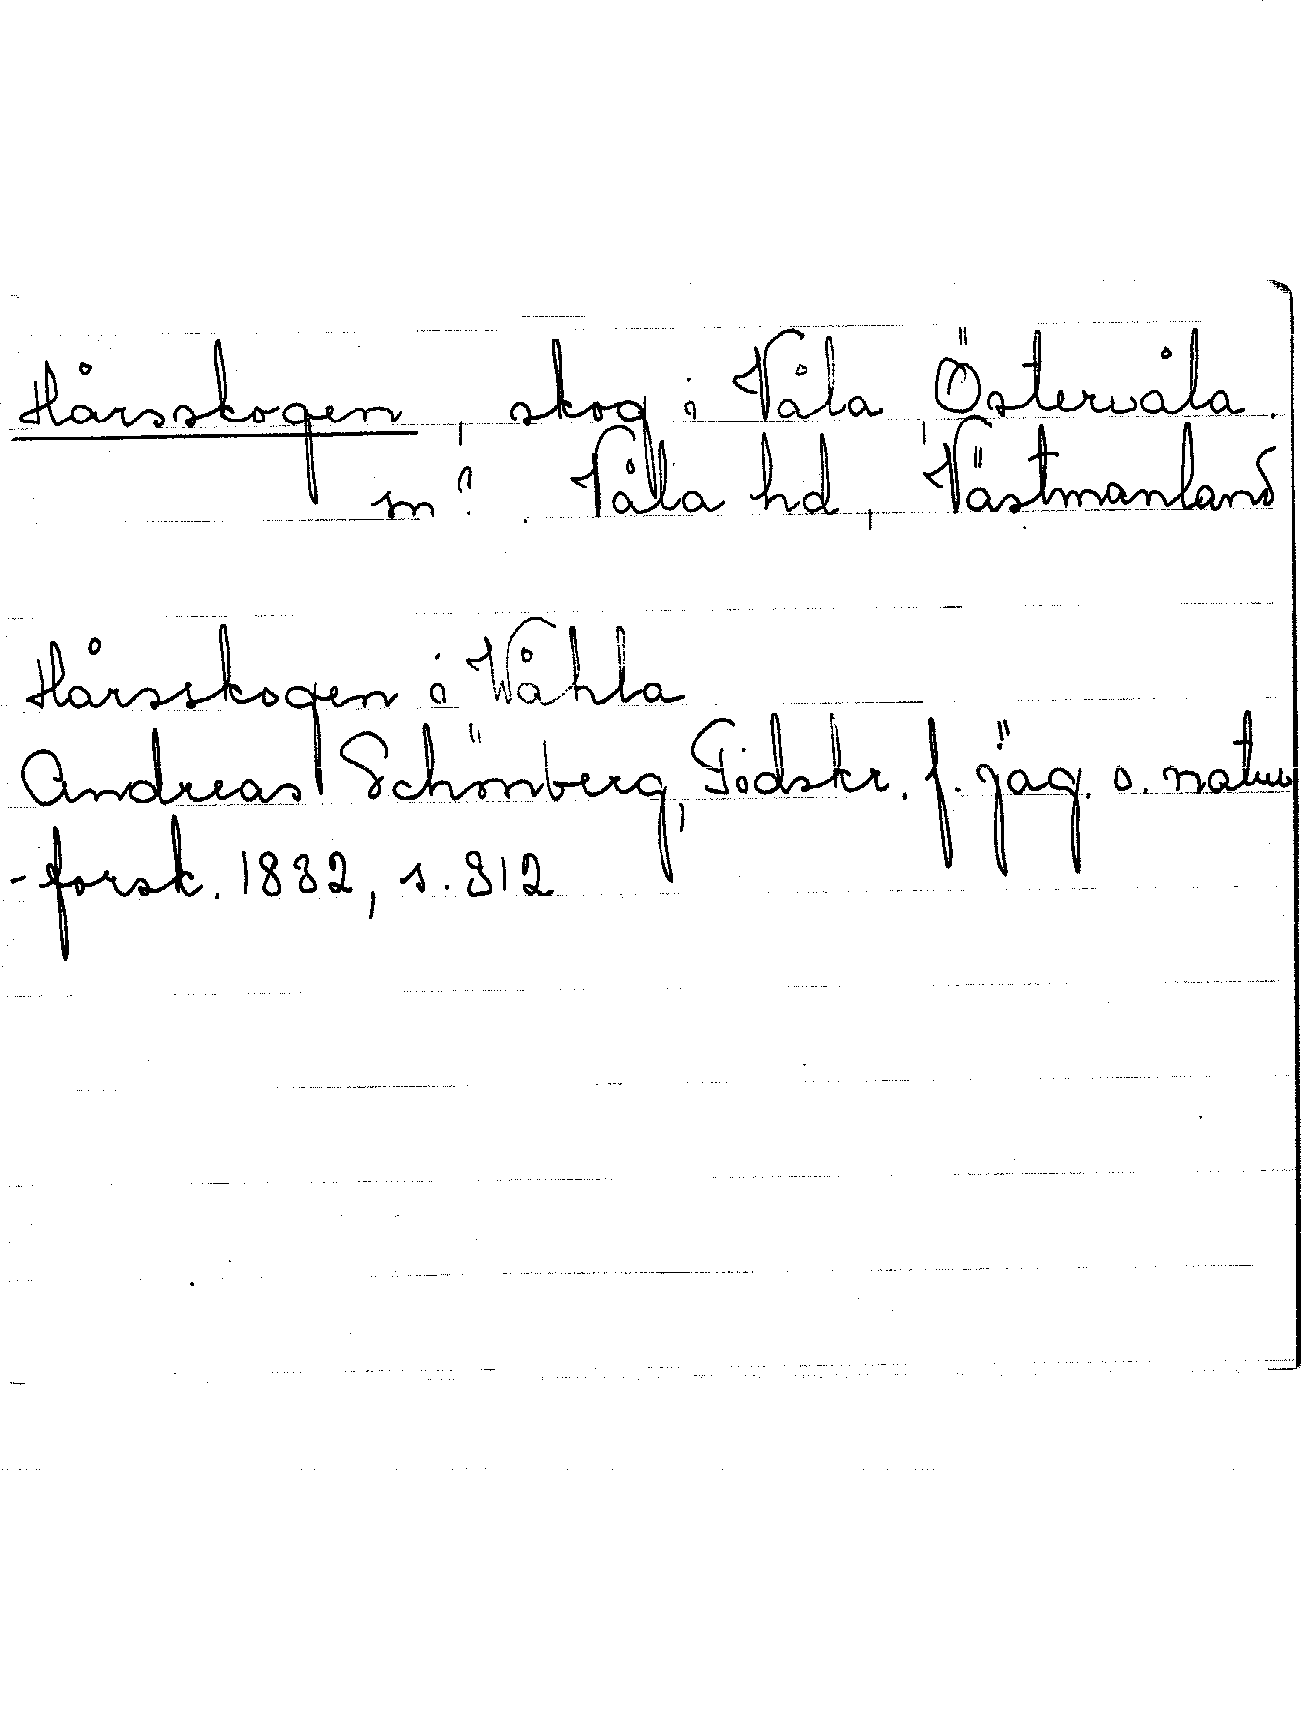 Hårsskogen, skog i Våla, Östervåla.
sn? Våla hd, Västmanland
Hårsskogen i Wåhla
Andreas Schönberg, Tidskr. f. jäg. o. natur
-forsk. 1832, s. 312